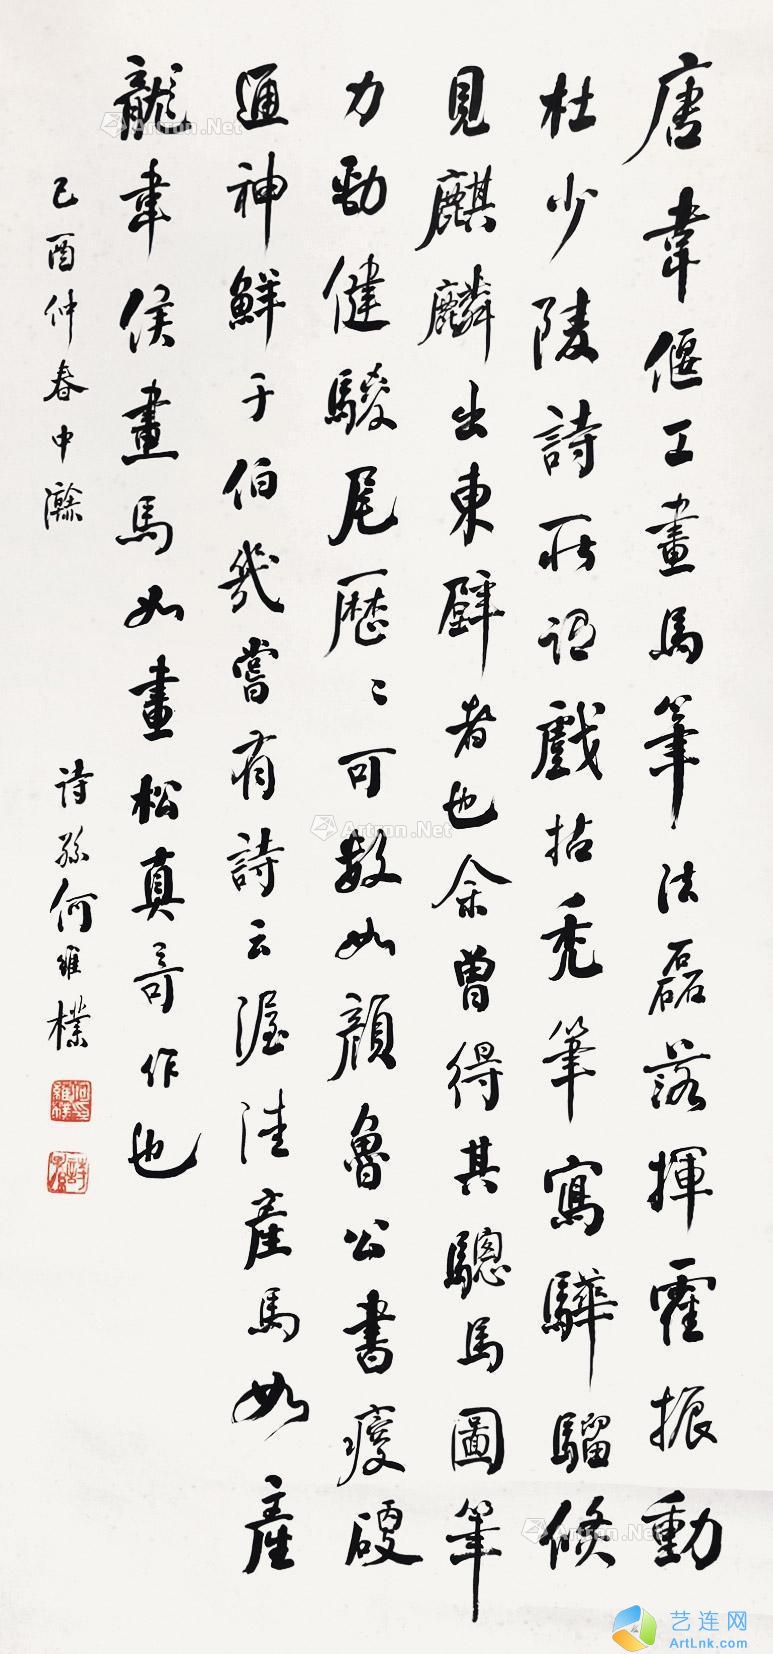 唐韋偃工畫馬筆法磊落揮霍振動
杜少陵詩所謂戲拈禿筆寫驊騮倏
見麒麟出東壁者也余曾得其驄馬圖筆
力勁健駿尾歷歷可數如顏魯公書瘦硬
通神鮮于伯幾嘗有詩云渥洼產馬如產
龍韋侯畫馬如畫松真奇作也
己酉仲春中澣
詩孫何維樸
Artron.Net
Artron.Net
Artron.Net
艺连网
ArtLnk.com